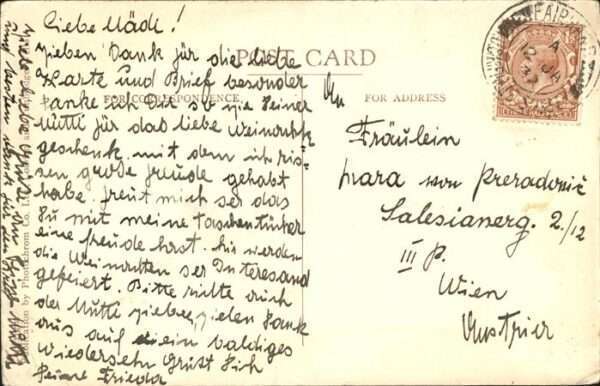 Liebe Mädi!
Lieben Dank für die liebe
Karte und Brief besonder
danke ich Dir sowie Deiner
Mutti für das liebe Weinachts
geschenk mit dem ich ries-
sen große freude gehabt
habe. freut mich ser das
Du mit meine Taschentücher
eine freude hast. hir werden
die Weinachten ser Interesand
gefeiert. Bitte richte auch
der Mutti lieben, vielen Dank
aus auf ein baldiges
Wiedersehn Grüst Dich
Deine Frieda
POST CARD
FOR CORRESPONDENCE
FOR ADDRESS
An
Fräulein
Mara von Preradovič
Salesianerg. 2/12
III P.
Wien
Austrier
by Photochrom Co.